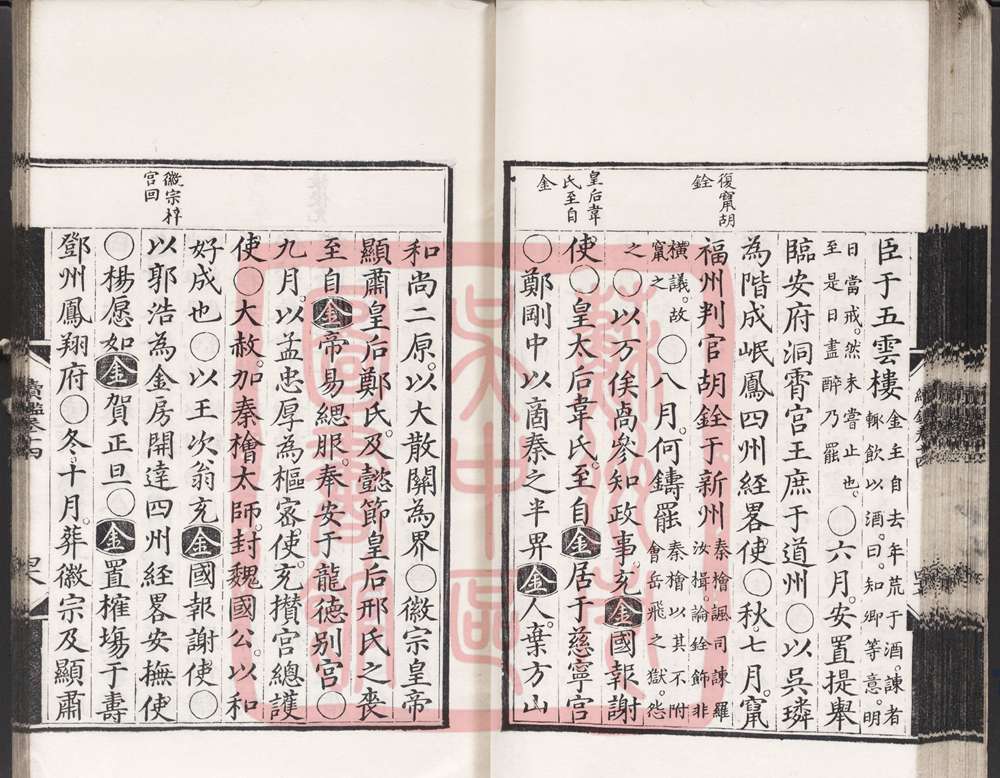 復竄胡
銓
皇后韋
氏至自
金
臣于五雲樓金主自去年荒于酒。諫者輙飲以酒。曰。知卿等意。明
日當戒。然未嘗止也。至是日盡醉乃罷〇六月。安置提舉
臨安府洞霄宮王庶于道州〇以吳璘
為階成岷鳳四州經畧使〇秋。七月。竄
福州判官胡銓于新州秦檜諷司諫羅汝楫。論銓飾非
橫議。故竄之〇八月。何鑄罷秦檜以其不附會岳飛之獄。怨
之〇以万俟卨參知政事。充金國報謝
使〇皇太后韋氏。至自金居于慈寧宮
〇鄭剛中以啇秦之半畀金人。棄方山
徽宗梓
宮回
和尚二原。以大散關為界〇徽宗皇帝
顯肅皇后鄭氏。及懿節皇后邢氏之喪
至自金帝易緦服。奉安于龍德別宮〇
九月。以孟忠厚為樞密使。充攢宮總護
使〇大赦。加秦檜太師。封魏國公。以和
好成也〇以王次翁充金國報謝使〇
以郭浩為金房開達四州經畧安撫使
〇楊愿如金賀正旦〇金置榷場于壽
鄧州鳳翔府〇冬。十月。葬徽宗及顯肅